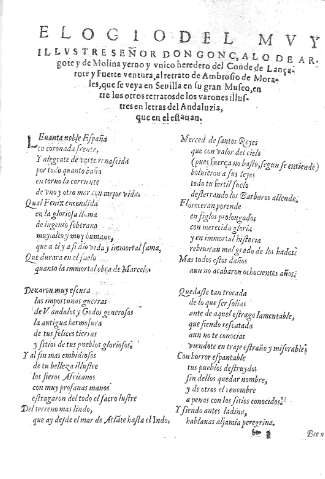 ELOGIO DEL MVY
ILLVSTRE SEÑOR DON GONÇALO DE AR
gote y de Molina yerno y vnico heredero del Conde de Lança
rote y Fuerte ventura, al retrato de Ambrosio de Mora-
les, que se veya en Sevilla en su gran Museo, en
tre los otros retratos de los varones illus-
tres en letras del Andaluzia,
que en el estauan.
LEuanta noble España
tu coronada frente,
Y alegrate de verte renascida
por todo quanto baña
en torno la corriente
de vno y otro mar con mejor vida.
Qual Fenix encendida
en la gloriosa llama
de ingenio soberano
muy alto y muy humano,
que a ti y a si dio vida y immortal fama,
Que durara en el suelo
quanto la immortal obra de Marcelo.
Dexaron muy escura
las importunas guerras
de Vandalos y Godos generosos
la antigua hermosura
de tus felices tierras
y sitios de tus pueblos gloriosos.
Y al fin mas embidiosos
de tu belleza illustre
los fieros Africanos
con muy profanas manos
estragaron del todo el sacro lustre
Del terreno mas lindo,
que ay desde el mar de Atlante hasta el Indo.
Merced de santos Reyes
que con valor del cielo
(pues fuerça no bastó, segun se entiende)
boluieron a sus leyes
todo tu fertil suelo
desterrando los Barbaros allende,
Floreceran por ende
en siglos prolongados
con merecida gloria
y en immortal historia
Mas todos estos daños
aun no acabaron ochocientos años.
Quedaste tan trocada
de lo que ser solias
ante de aquel estrago lamentable,
que siendo rescatada
aun no te conocias
viendote en trage estraño y miserable,
Con horror espantable
tus pueblos destruydos
sin dellos quedar nombre,
y de otros el renombre
a penas con los sitios conocidos.
Y siendo antes ladina,
hablauas aljamia peregrina.